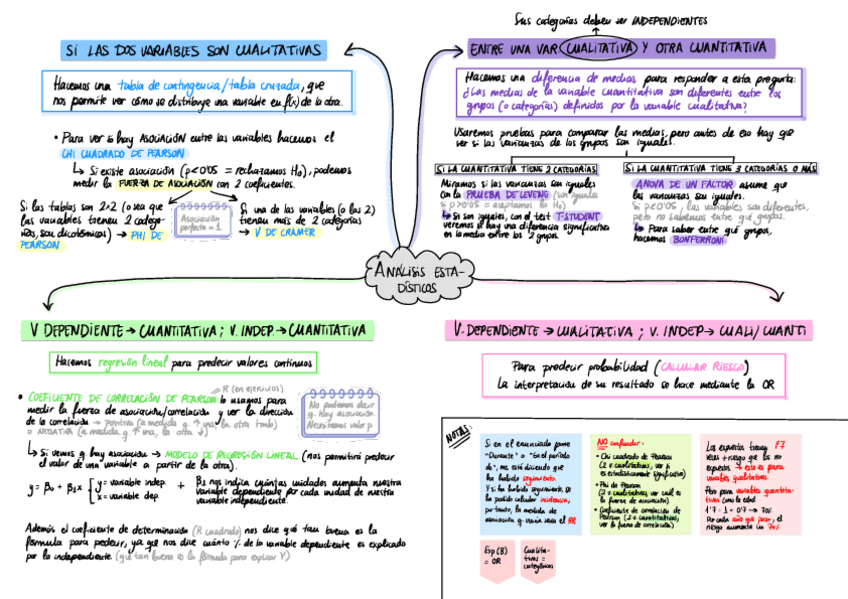 Sus categorías deben ser INDEPENDIENTES
SI LAS DOS VARIABLES SON CUALITATIVAS
Hacemos una tabla de contingencia/tabla cruzada, que
nos permite ver cómo se distribuye una variable en f(x) de la otra.
• Para ver si hay ASOCIACIÓN entre las variables hacemos el
CHI CUADRADO DE PEARSON
↳ Si existe asociación (p<0'05 = rechazamos H₀), podemos
medir la FUERZA DE ASOCIACIÓN con 2 coeficientes.
Si las tablas son 2×2 (o sea que
las variables tienen 2 catego-
rías, son dicotómicas) → PHI DE
PEARSON
Asociación
perfecta = 1
Si una de las variables (o las 2)
tienen más de 2 categorías
→ V DE CRAMER
ENTRE UNA VAR CUALITATIVA Y OTRA CUANTITATIVA
Hacemos una diferencia de medias para responder a esta pregunta:
¿Las medias de la variable cuantitativa son diferentes entre los
grupos (o categorías) definidos por la variable cualitativa?
Usaremos pruebas para comparar las medias, pero antes de eso hay que
ver si las varianzas de los grupos son iguales.
SI LA CUANTITATIVA TIENE 2 CATEGORÍAS
Miramos si las varianzas son iguales
con la PRUEBA DE LEVENE (son iguales
si p>0'05 = aceptamos la H₀)
↳ Si son iguales, con el test T-STUDENT
veremos si hay una diferencia significativa
en la media entre los 2 grupos.
SI LA CUANTITATIVA TIENE 3 CATEGORÍAS O MÁS
ANOVA DE UN FACTOR asume que
las varianzas son iguales.
Si p<0'05, las variables son diferentes,
pero no sabemos entre qué grupos.
↳ Para saber entre qué grupos,
hacemos BONFERRONI
ANÁLISIS ESTA-
DÍSTICOS
V DEPENDIENTE → CUANTITATIVA; V. INDEP → CUANTITATIVA
Hacemos regresión lineal para predecir valores continuos
R (en ejercicios)
• COEFICIENTE DE CORRELACIÓN DE PEARSON lo usamos para
medir la fuerza de asociación/correlación y ver la dirección
de la correlación → POSITIVA (a medida q. ↑ una, la otra tmb)
o NEGATIVA (a medida q. ↑ una, la otra ↓)
No podemos decir
q. hay asociación.
Necesitamos valor p.
↳ Si vemos q hay asociación → MODELO DE REGRESIÓN LINEAL (nos permitirá predecir
el valor de una variable a partir de la otra).
y = β₀ + β₁x { y = variable indep. + β₁ nos indica cuántas unidades aumenta nuestra
x = variable dep. variable dependiente por cada unidad de nuestra
variable independiente.
Además el coeficiente de determinación (R cuadrado) nos dice qué tan buena es la
fórmula para predecir, ya que nos dice cuánto % de la variable dependiente es explicado
por la independiente. (qué tan buena es la fórmula para explicar Y)
V. DEPENDIENTE → CUALITATIVA; V. INDEP → CUALI/CUANTI
Para predecir probabilidad (CALCULAR RIESGO)
La interpretación de su resultado se hace mediante la OR
NOTAS:
Si en el enunciado pone
"Durante" o "En el período
de", me está diciendo que
ha habido seguimiento.
Y si ha habido seguimiento, se
ha podido calcular incidencia,
por tanto, la medida de
asociación q. usaría será el RR
NO confundir:
• Chi cuadrado de Pearson
(2 v. cualitativas, ver si es
estadísticamente significativo)
• Phi de Pearson
(2 v. cualitativas, ver cuál es
la fuerza de asociación)
• Coeficiente de correlación de
Pearson (2 v. cuantitativas,
ver la fuerza de correlación)
Los expuestos tienen 1'7
veces + riesgo que los no
expuestos → esto es para
variables cualitativas.
Pero para variables cuantita-
tivas como la edad
1'7 - 1 = 0'7 → 70%
Por cada año que pasa, el
riesgo aumenta un 70%
Exp(B)
= OR
Cualita-
tivas =
categóricas